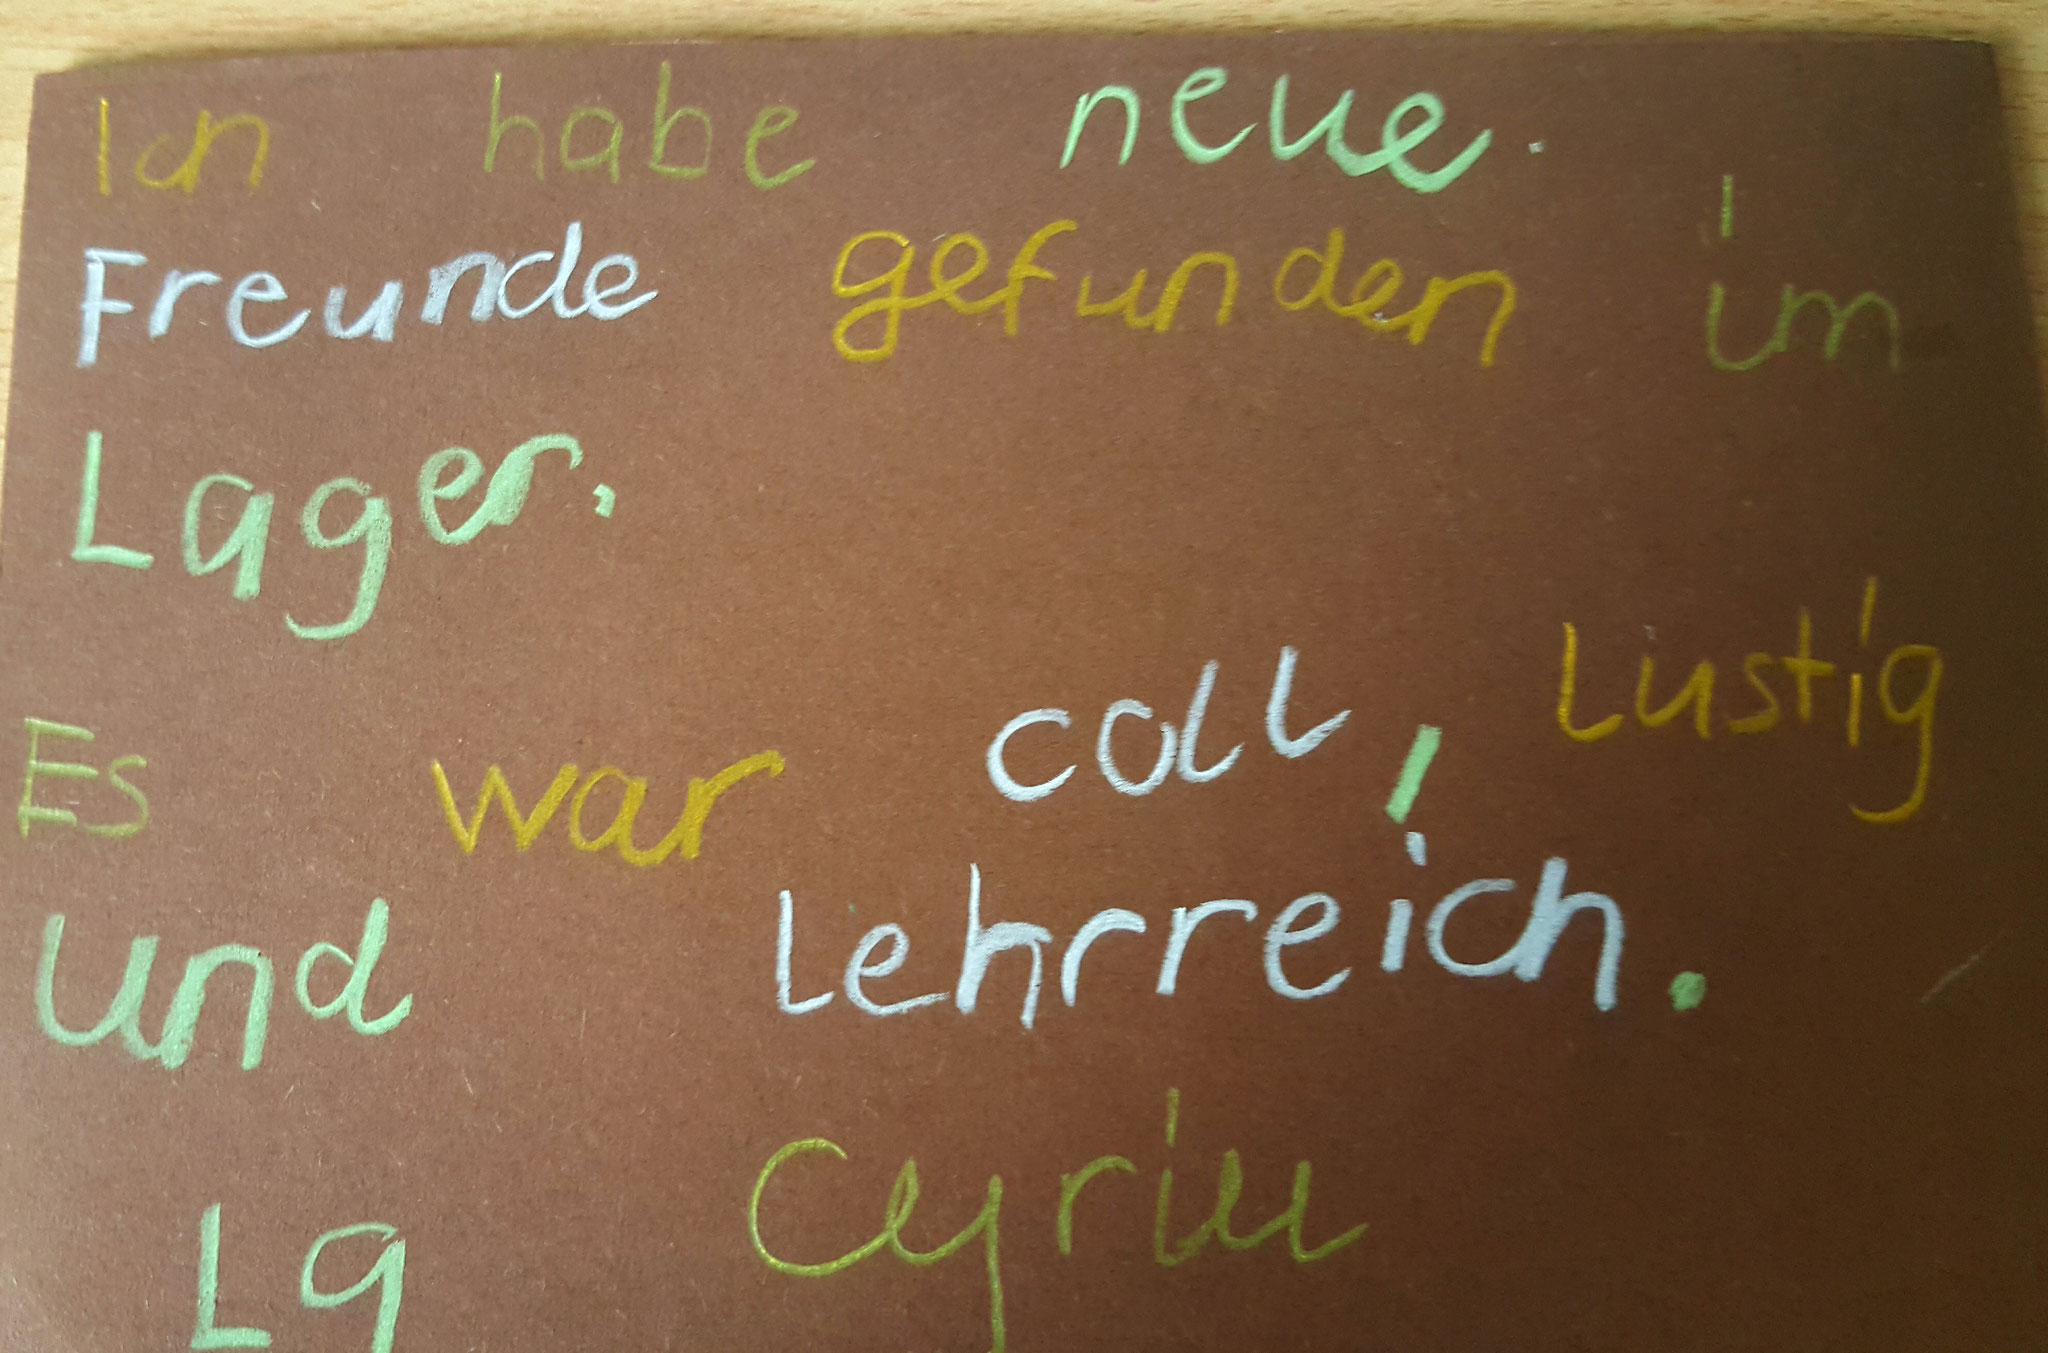 Ich habe neue
Freunde gefunden im
Lager.
Es war coll, Lustig
und Lehrreich.
Lg Cyrill